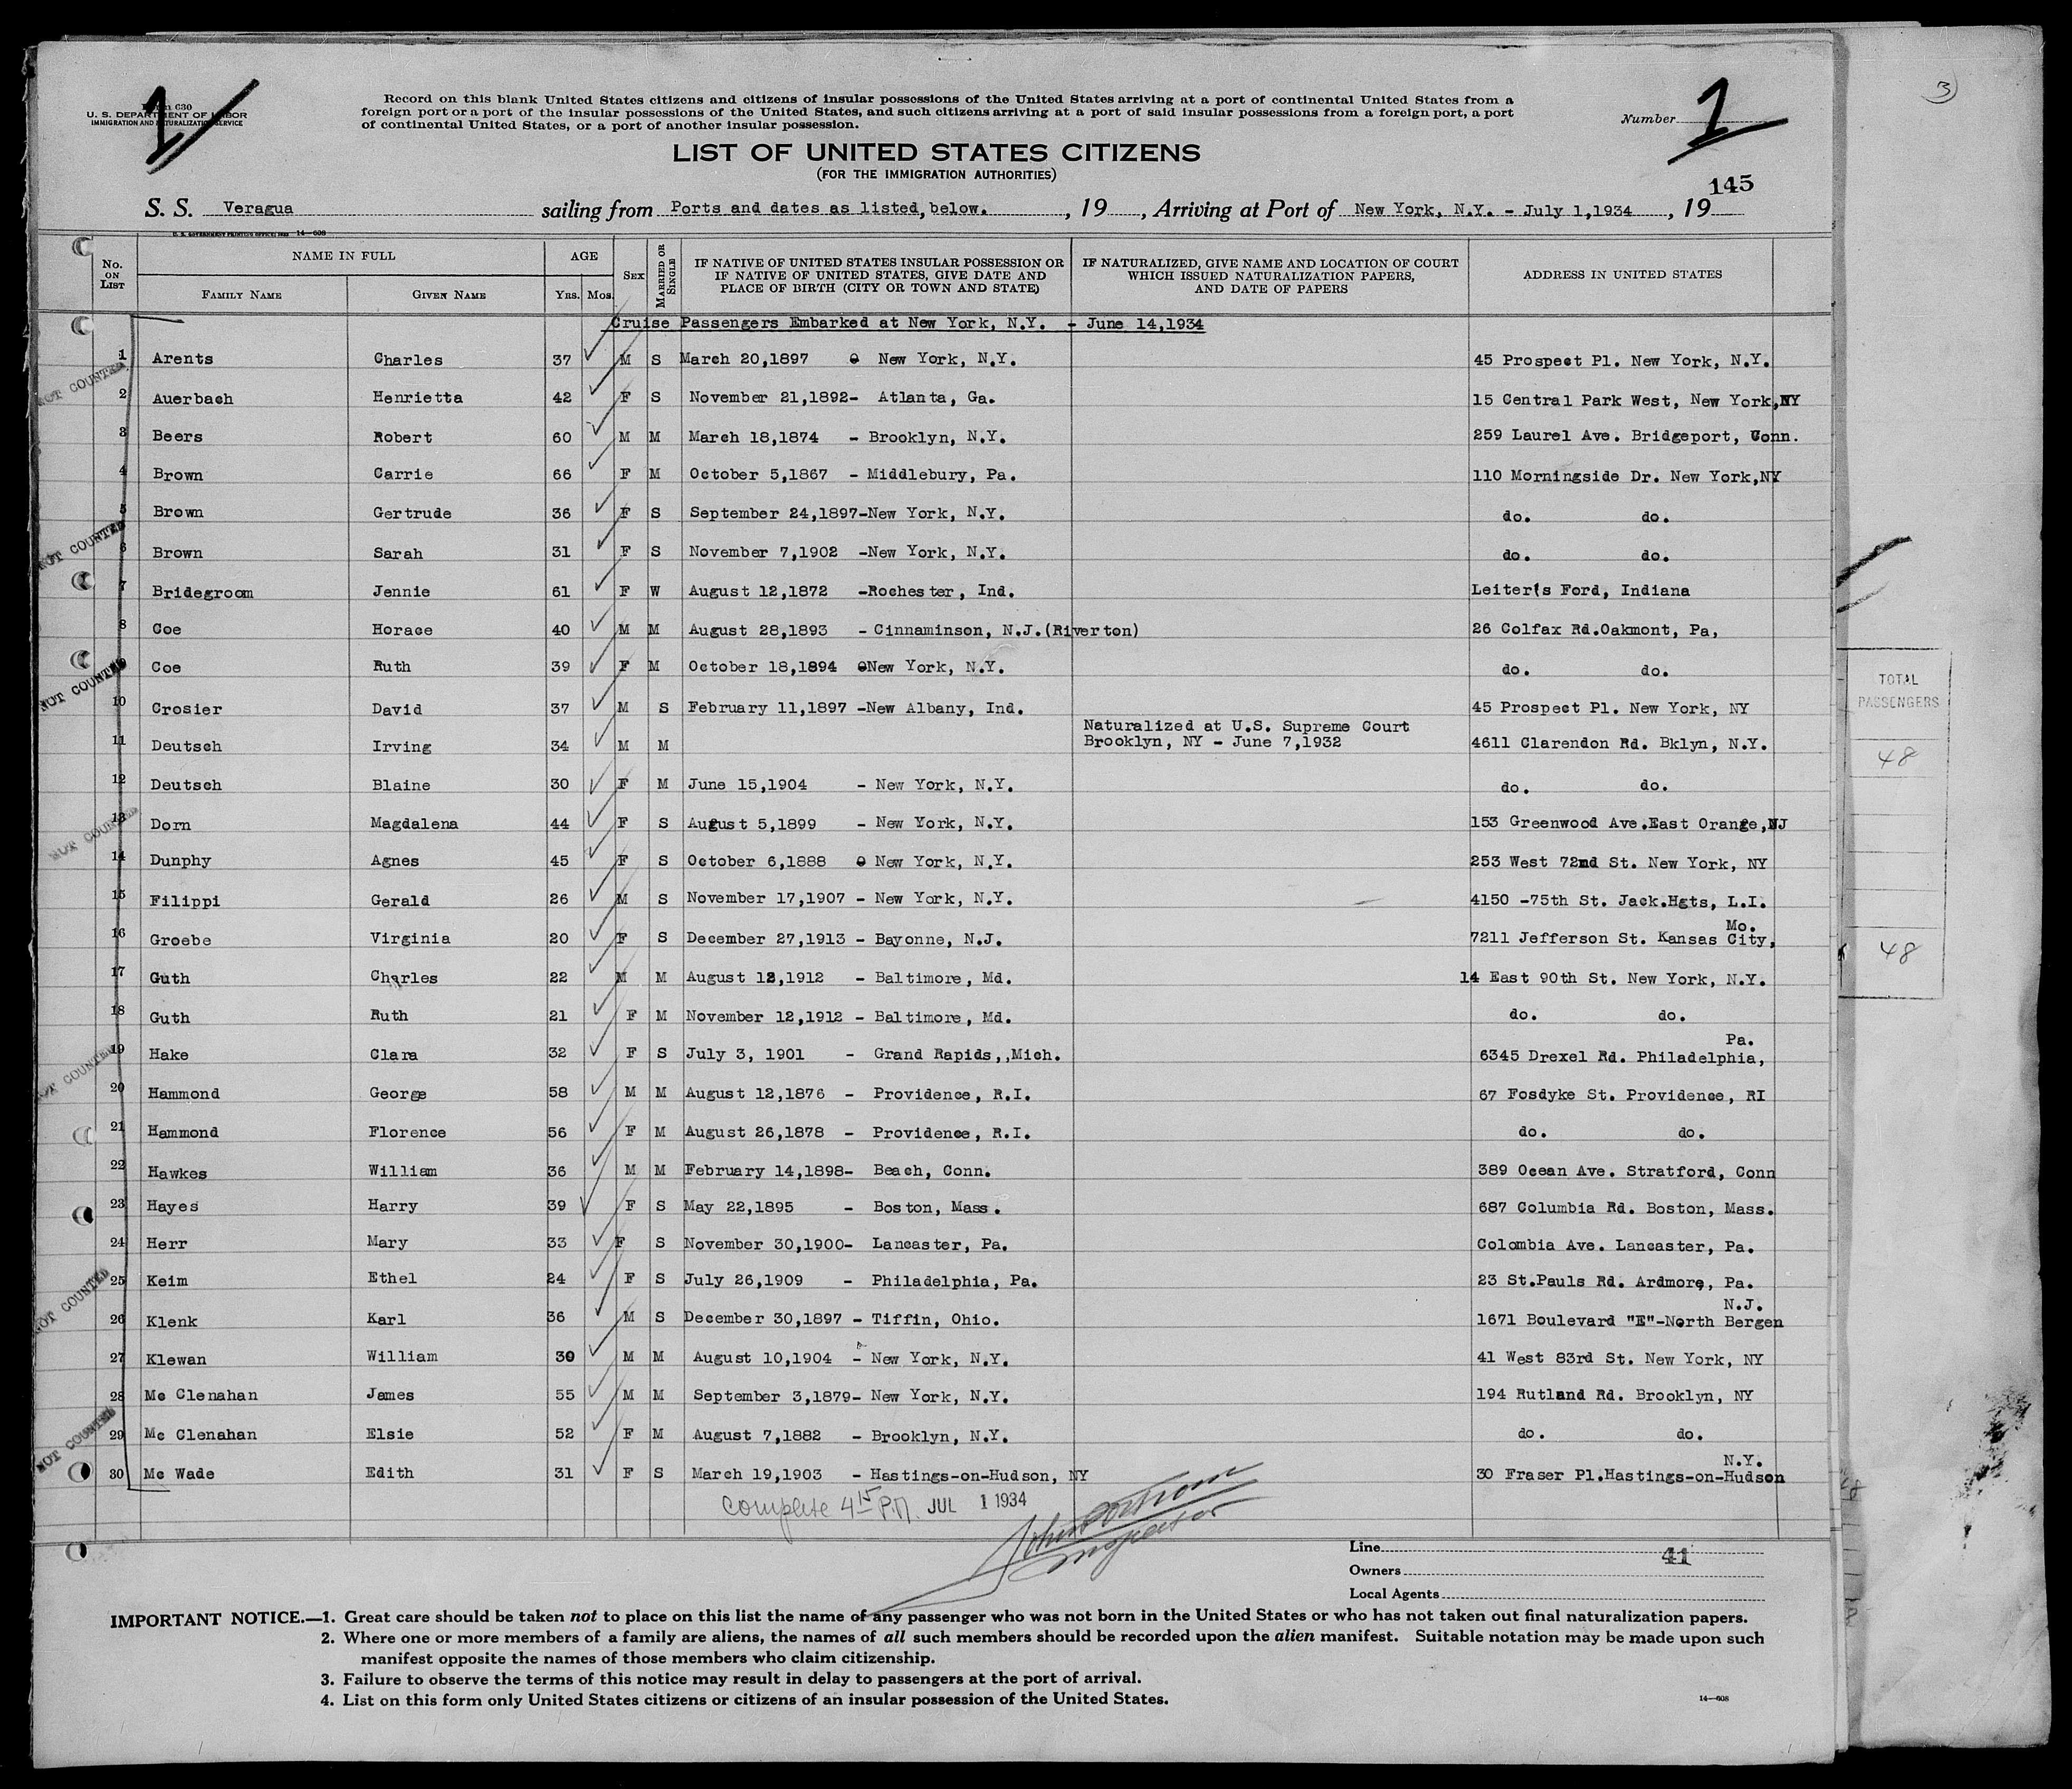 Form 630
U. S. DEPARTMENT OF LABOR
IMMIGRATION AND NATURALIZATION SERVICE
1
Record on this blank United States citizens and citizens of insular possessions of the United States arriving at a port of continental United States from a
foreign port or a port of the insular possessions of the United States, and such citizens arriving at a port of said insular possessions from a foreign port, a port
of continental United States, or a port of another insular possession.
Number 1
3
LIST OF UNITED STATES CITIZENS
(FOR THE IMMIGRATION AUTHORITIES)
145
S. S. Veragua sailing from Ports and dates as listed, below. , 19 , Arriving at Port of New York, N.Y. - July 1,1934 , 19
U. S. GOVERNMENT PRINTING OFFICE: 14-608
No. ON LIST NAME IN FULL FAMILY NAME GIVEN NAME AGE YRS. MOS. SEX MARRIED OR SINGLE IF NATIVE OF UNITED STATES INSULAR POSSESSION OR IF NATIVE OF UNITED STATES, GIVE DATE AND PLACE OF BIRTH (CITY OR TOWN AND STATE) IF NATURALIZED, GIVE NAME AND LOCATION OF COURT WHICH ISSUED NATURALIZATION PAPERS, AND DATE OF PAPERS ADDRESS IN UNITED STATES
Cruise Passengers Embarked at New York, N.Y. - June 14,1934
1 Arents Charles 37 M S March 20,1897 New York, N.Y. 45 Prospect Pl. New York, N.Y.
NOT COUNTED
2 Auerbach Henrietta 42 F S November 21,1892- Atlanta, Ga. 15 Central Park West, New York,NY
3 Beers Robert 60 M M March 18,1874 - Brooklyn, N.Y. 259 Laurel Ave. Bridgeport, Conn.
4 Brown Carrie 66 F M October 5,1867 - Middlebury, Pa. 110 Morningside Dr. New York,NY
5 Brown Gertrude 36 F S September 24,1897-New York, N.Y. do. do.
NOT COUNTED
6 Brown Sarah 31 F S November 7,1902 -New York, N.Y. do. do.
7 Bridegroom Jennie 61 F W August 12,1872 -Rochester, Ind. Leiter's Ford, Indiana
8 Coe Horace 40 M M August 28,1893 - Cinnaminson, N.J.(Riverton) 26 Colfax Rd.Oakmont, Pa,
9 Coe Ruth 39 F M October 18,1894 New York, N.Y. do. do.
NOT COUNTED
10 Crosier David 37 M S February 11,1897 -New Albany, Ind. 45 Prospect Pl. New York, NY
11 Deutsch Irving 34 M M Naturalized at U.S. Supreme Court
Brooklyn, NY - June 7,1932 4611 Clarendon Rd. Bklyn, N.Y.
12 Deutsch Blaine 30 F M June 15,1904 - New York, N.Y. do. do.
13 Dorn Magdalena 44 F S August 5,1899 - New York, N.Y. 153 Greenwood Ave.East Orange,NJ
NOT COUNTED
14 Dunphy Agnes 45 F S October 6,1888 New York, N.Y. 253 West 72nd St. New York, NY
15 Filippi Gerald 26 M S November 17,1907 - New York, N.Y. 4150 -75th St. Jack.Hgts, L.I.
16 Groebe Virginia 20 F S December 27,1913 - Bayonne, N.J. 7211 Jefferson St. Kansas City, Mo.
17 Guth Charles 22 M M August 12,1912 - Baltimore, Md. 14 East 90th St. New York, N.Y.
18 Guth Ruth 21 F M November 12,1912 - Baltimore, Md. do. do.
19 Hake Clara 32 F S July 3, 1901 - Grand Rapids,,Mich. 6345 Drexel Rd. Philadelphia, Pa.
NOT COUNTED
20 Hammond George 58 M M August 12,1876 - Providence, R.I. 67 Fosdyke St. Providence, RI
21 Hammond Florence 56 F M August 26,1878 - Providence, R.I. do. do.
22 Hawkes William 36 M M February 14,1898- Beach, Conn. 389 Ocean Ave. Stratford, Conn
23 Hayes Harry 39 F S May 22,1895 - Boston, Mass. 687 Columbia Rd. Boston, Mass.
24 Herr Mary 33 F S November 30,1900- Lancaster, Pa. Colombia Ave. Lancaster, Pa.
25 Keim Ethel 24 F S July 26,1909 - Philadelphia, Pa. 23 St.Pauls Rd. Ardmore, Pa.
NOT COUNTED
26 Klenk Karl 36 M S December 30,1897 - Tiffin, Ohio. 1671 Boulevard "E"-North Bergen N.J.
27 Klewan William 30 M M August 10,1904 - New York, N.Y. 41 West 83rd St. New York, NY
28 Mc Clenahan James 55 M M September 3,1879- New York, N.Y. 194 Rutland Rd. Brooklyn, NY
29 Mc Clenahan Elsie 52 F M August 7,1882 - Brooklyn, N.Y. do. do.
NOT COUNTED
30 Mc Wade Edith 31 F S March 19,1903 - Hastings-on-Hudson, NY 30 Fraser Pl.Hastings-on-Hudson N.Y.
TOTAL
PASSENGERS
48
48
Complete 4 15 P.M. JUL 1 1934
Inspector
Line 41
Owners
Local Agents
IMPORTANT NOTICE.—1. Great care should be taken not to place on this list the name of any passenger who was not born in the United States or who has not taken out final naturalization papers.
2. Where one or more members of a family are aliens, the names of all such members should be recorded upon the alien manifest. Suitable notation may be made upon such
manifest opposite the names of those members who claim citizenship.
3. Failure to observe the terms of this notice may result in delay to passengers at the port of arrival.
4. List on this form only United States citizens or citizens of an insular possession of the United States.
14—608